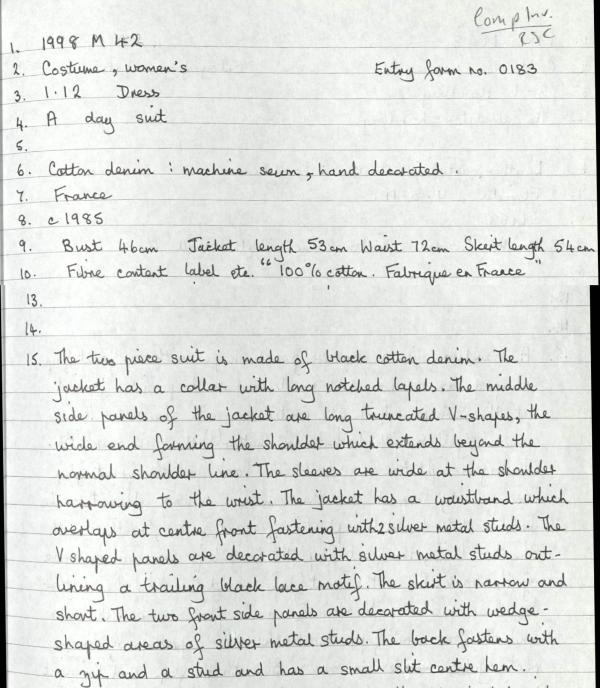 Comp Inv.
RJC
1. 1998 M 42
2. Costume, women's Entry form no. 0183
3. 1.12 Dress
4. A day suit
5.
6. Cotton denim : machine sewn, hand decorated.
7. France
8. c 1985
9. Bust 46cm Jacket length 53cm Waist 72cm Skirt length 54cm
10. Fibre content label etc. "100% cotton. Fabrique en France"
13.
14.
15. The two piece suit is made of black cotton denim. The
jacket has a collar with long notched lapels. The middle
side panels of the jacket are long truncated V-shapes, the
wide end forming the shoulder which extends beyond the
normal shoulder line. The sleeves are wide at the shoulder
narrowing to the wrist. The jacket has a waistband which
overlaps at centre front fastening with 2 silver metal studs. The
V shaped panels are decorated with silver metal studs out-
lining a trailing black lace motif. The skirt is narrow and
short. The two front side panels are decorated with wedge-
shaped areas of silver metal studs. The back fastens with
a zip and a stud and has a small slit centre hem.